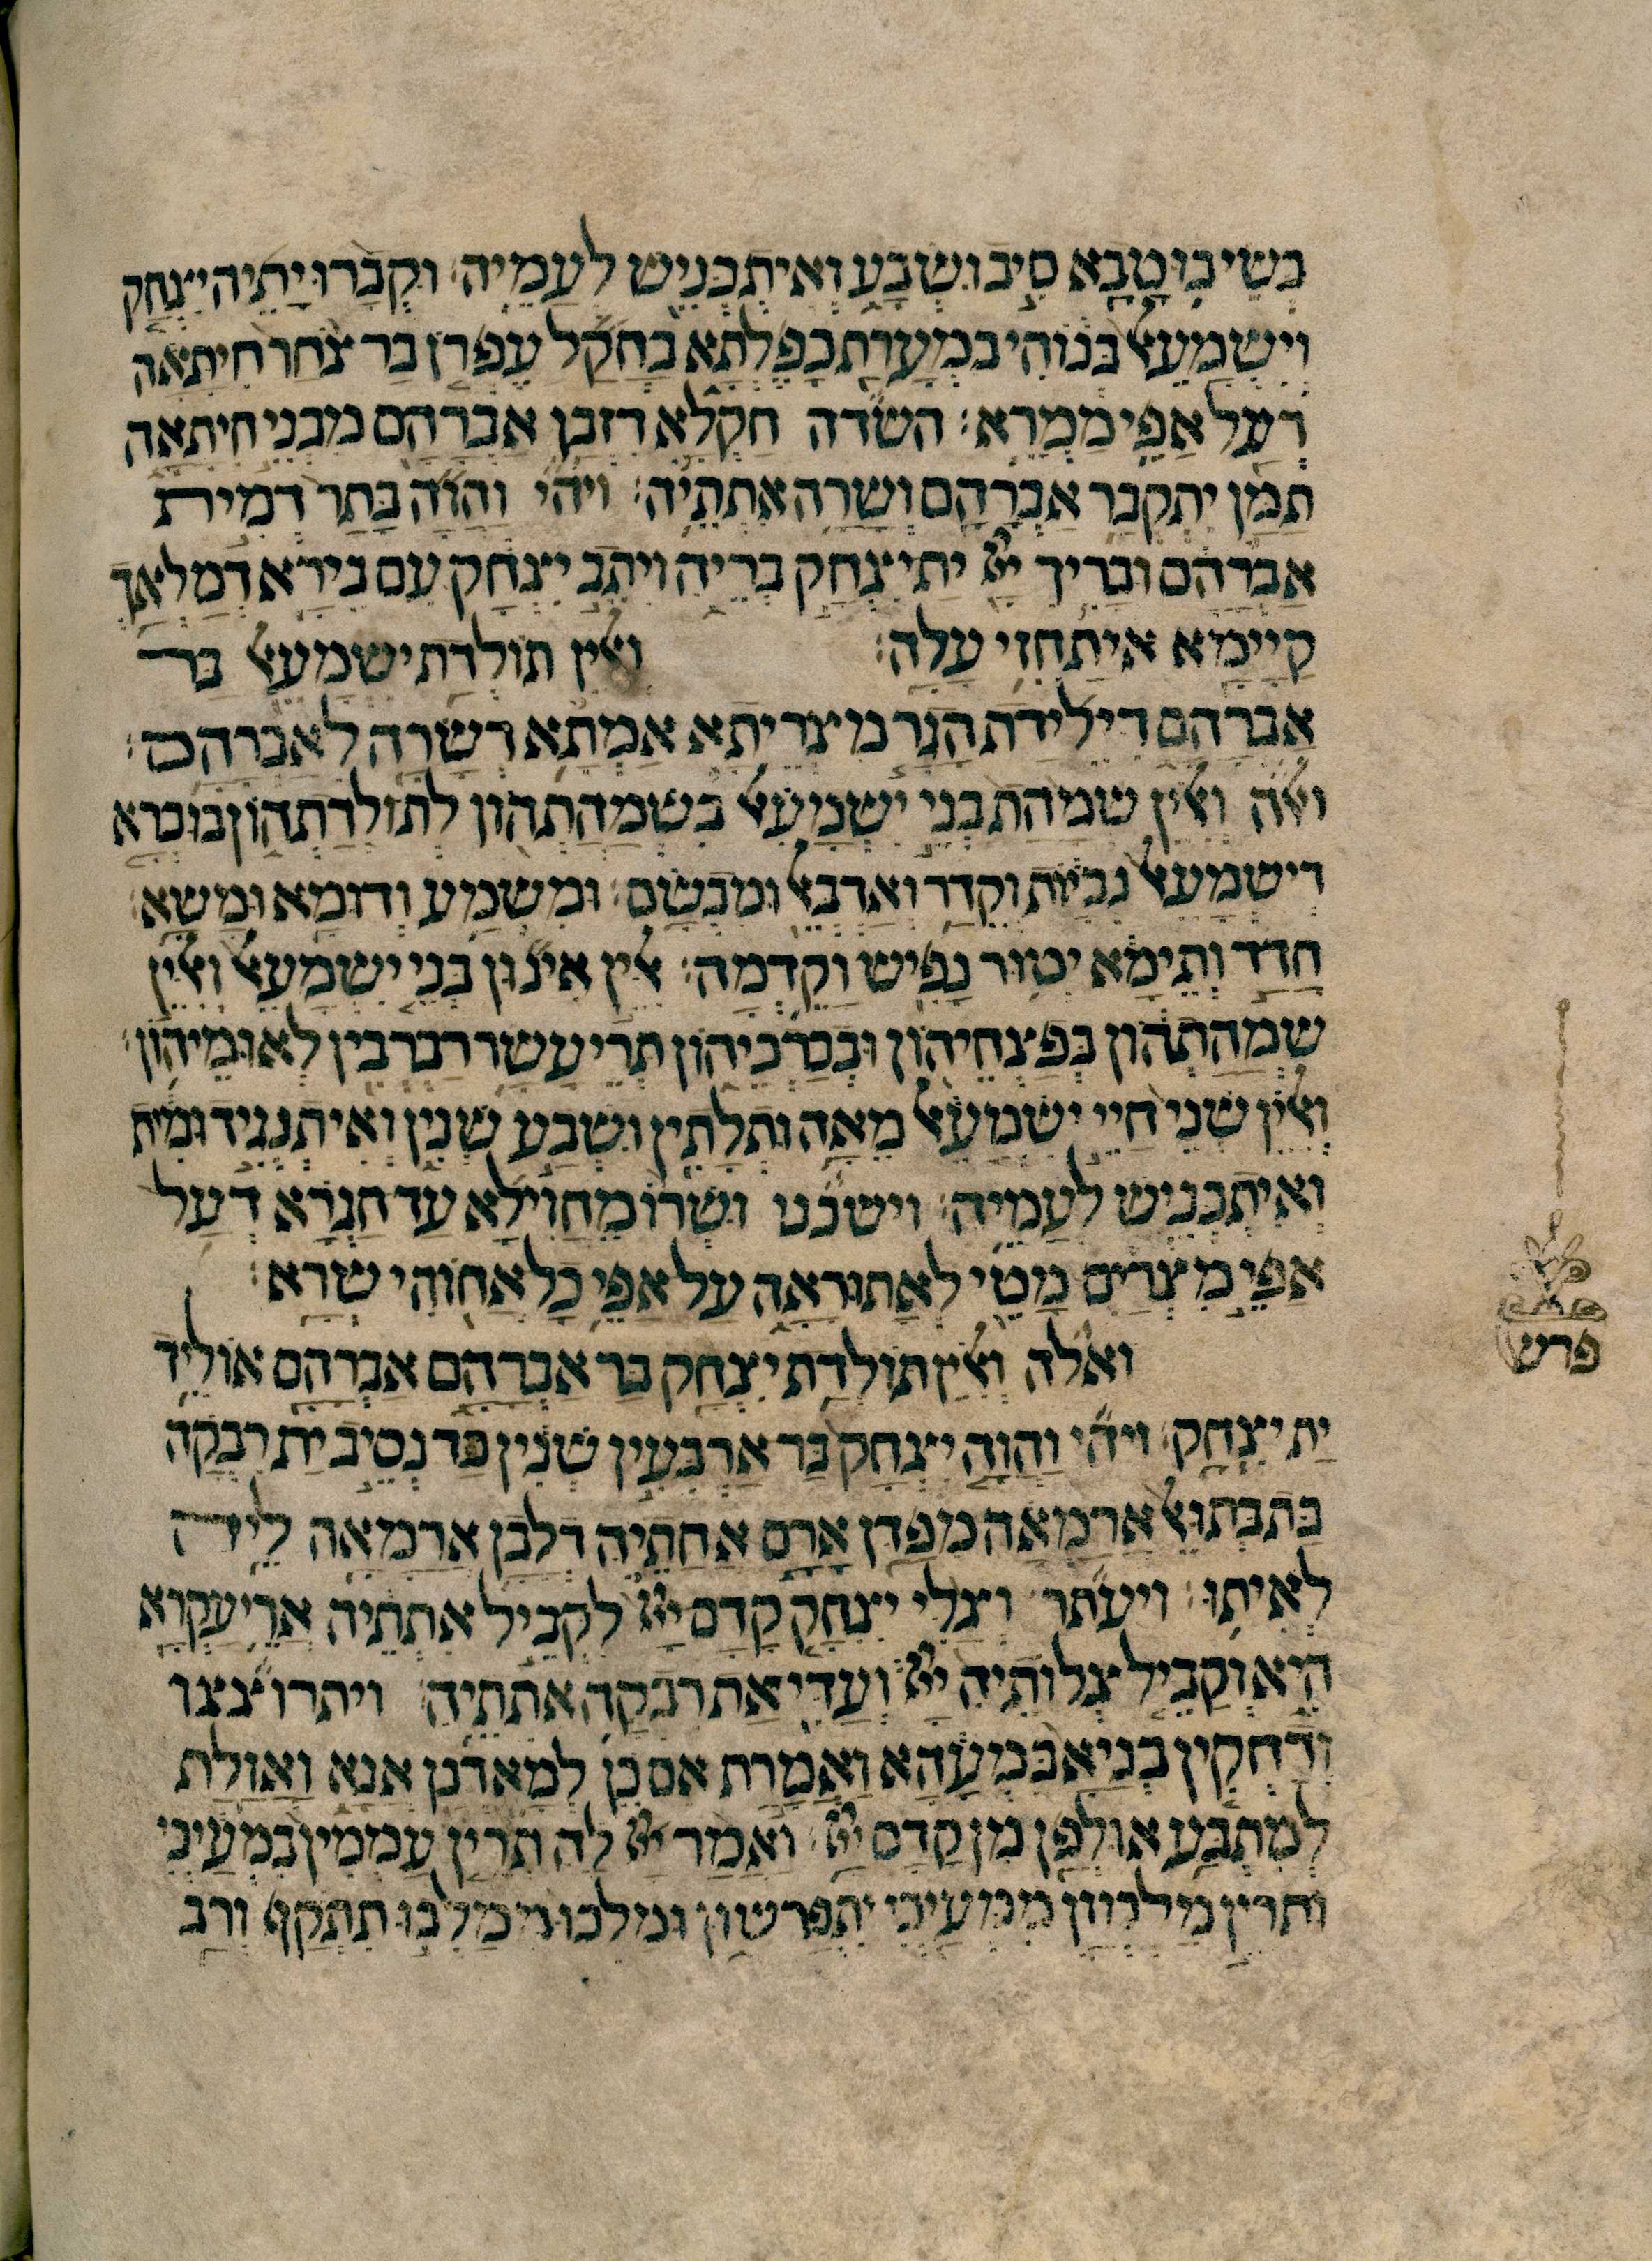 בשיבו טבא סיב ושבע ואיתכניש לעמיה׃ וקברו יתיה יצחק
וישמעאל בנוהי במערת כפלתא בחקל עפרן בר צחר חיתאה
דעל אפי ממרא׃ השדה חקלא דזבן אברהם מבני חיתאה
תמן יתקבר אברהם ושרה אתתיה׃ ויהי והוה בתר דמית
אברהם ובריך יי ית יצחק בריה ויתב יצחק עם בירא דמלאך
קיימא איתחזי עלה׃ ואלין תולדת ישמעאל בר
אברהם דילידת הגר מצריתא אמתא דשרה לאברהם׃
ואלה ואלין שמהת בני ישמעאל בשמהתהון לתולדתהון בוכרא
דישמעאל נביות וקדר ואדבאל ומבשם׃ ומשמע ודומא ומשא׃
חדד ותימא יטור נפיש וקדמה׃ אלין אינון בני ישמעאל ואלין
שמהתהון בפצחיהון ובכרכיהון תרי עשר רברבין לאומיהון׃
ואלין שני חיי ישמעאל מאה ותלתין ושבע שנין ואיתנגיד ומית
ואיתכניש לעמיה׃ וישכנו ושרו מחוילא עד חגרא דעל
אפי מצרים מטי לאתוראה על אפי כל אחוהי שרא׃
ואלה ואלין תולדת יצחק בר אברהם אברהם אוליד
ית יצחק׃ ויהי והוה יצחק בר ארבעין שנין כד נסיב ית רבקה
בת בתואל ארמאה מפדן ארם אחתיה דלבן ארמאה ליה
לאיתו׃ ויעתר וצלי יצחק קדם יי לקביל אתתיה ארי עקרא
היא וקביל צלותיה יי ועדיאת רבקה אתתיה׃ ויתרוצצו
ודחקין בניא במעהא ואמרת אם כן למאדנן אנא ואזלת
למתבע אולפן מן קדם יי׃ ואמר יי לה תרין עממין במעיכי
ותרין מלכוון ממעיכי יתפרשון ומלכו ממלכו תתקף ורב
פרש